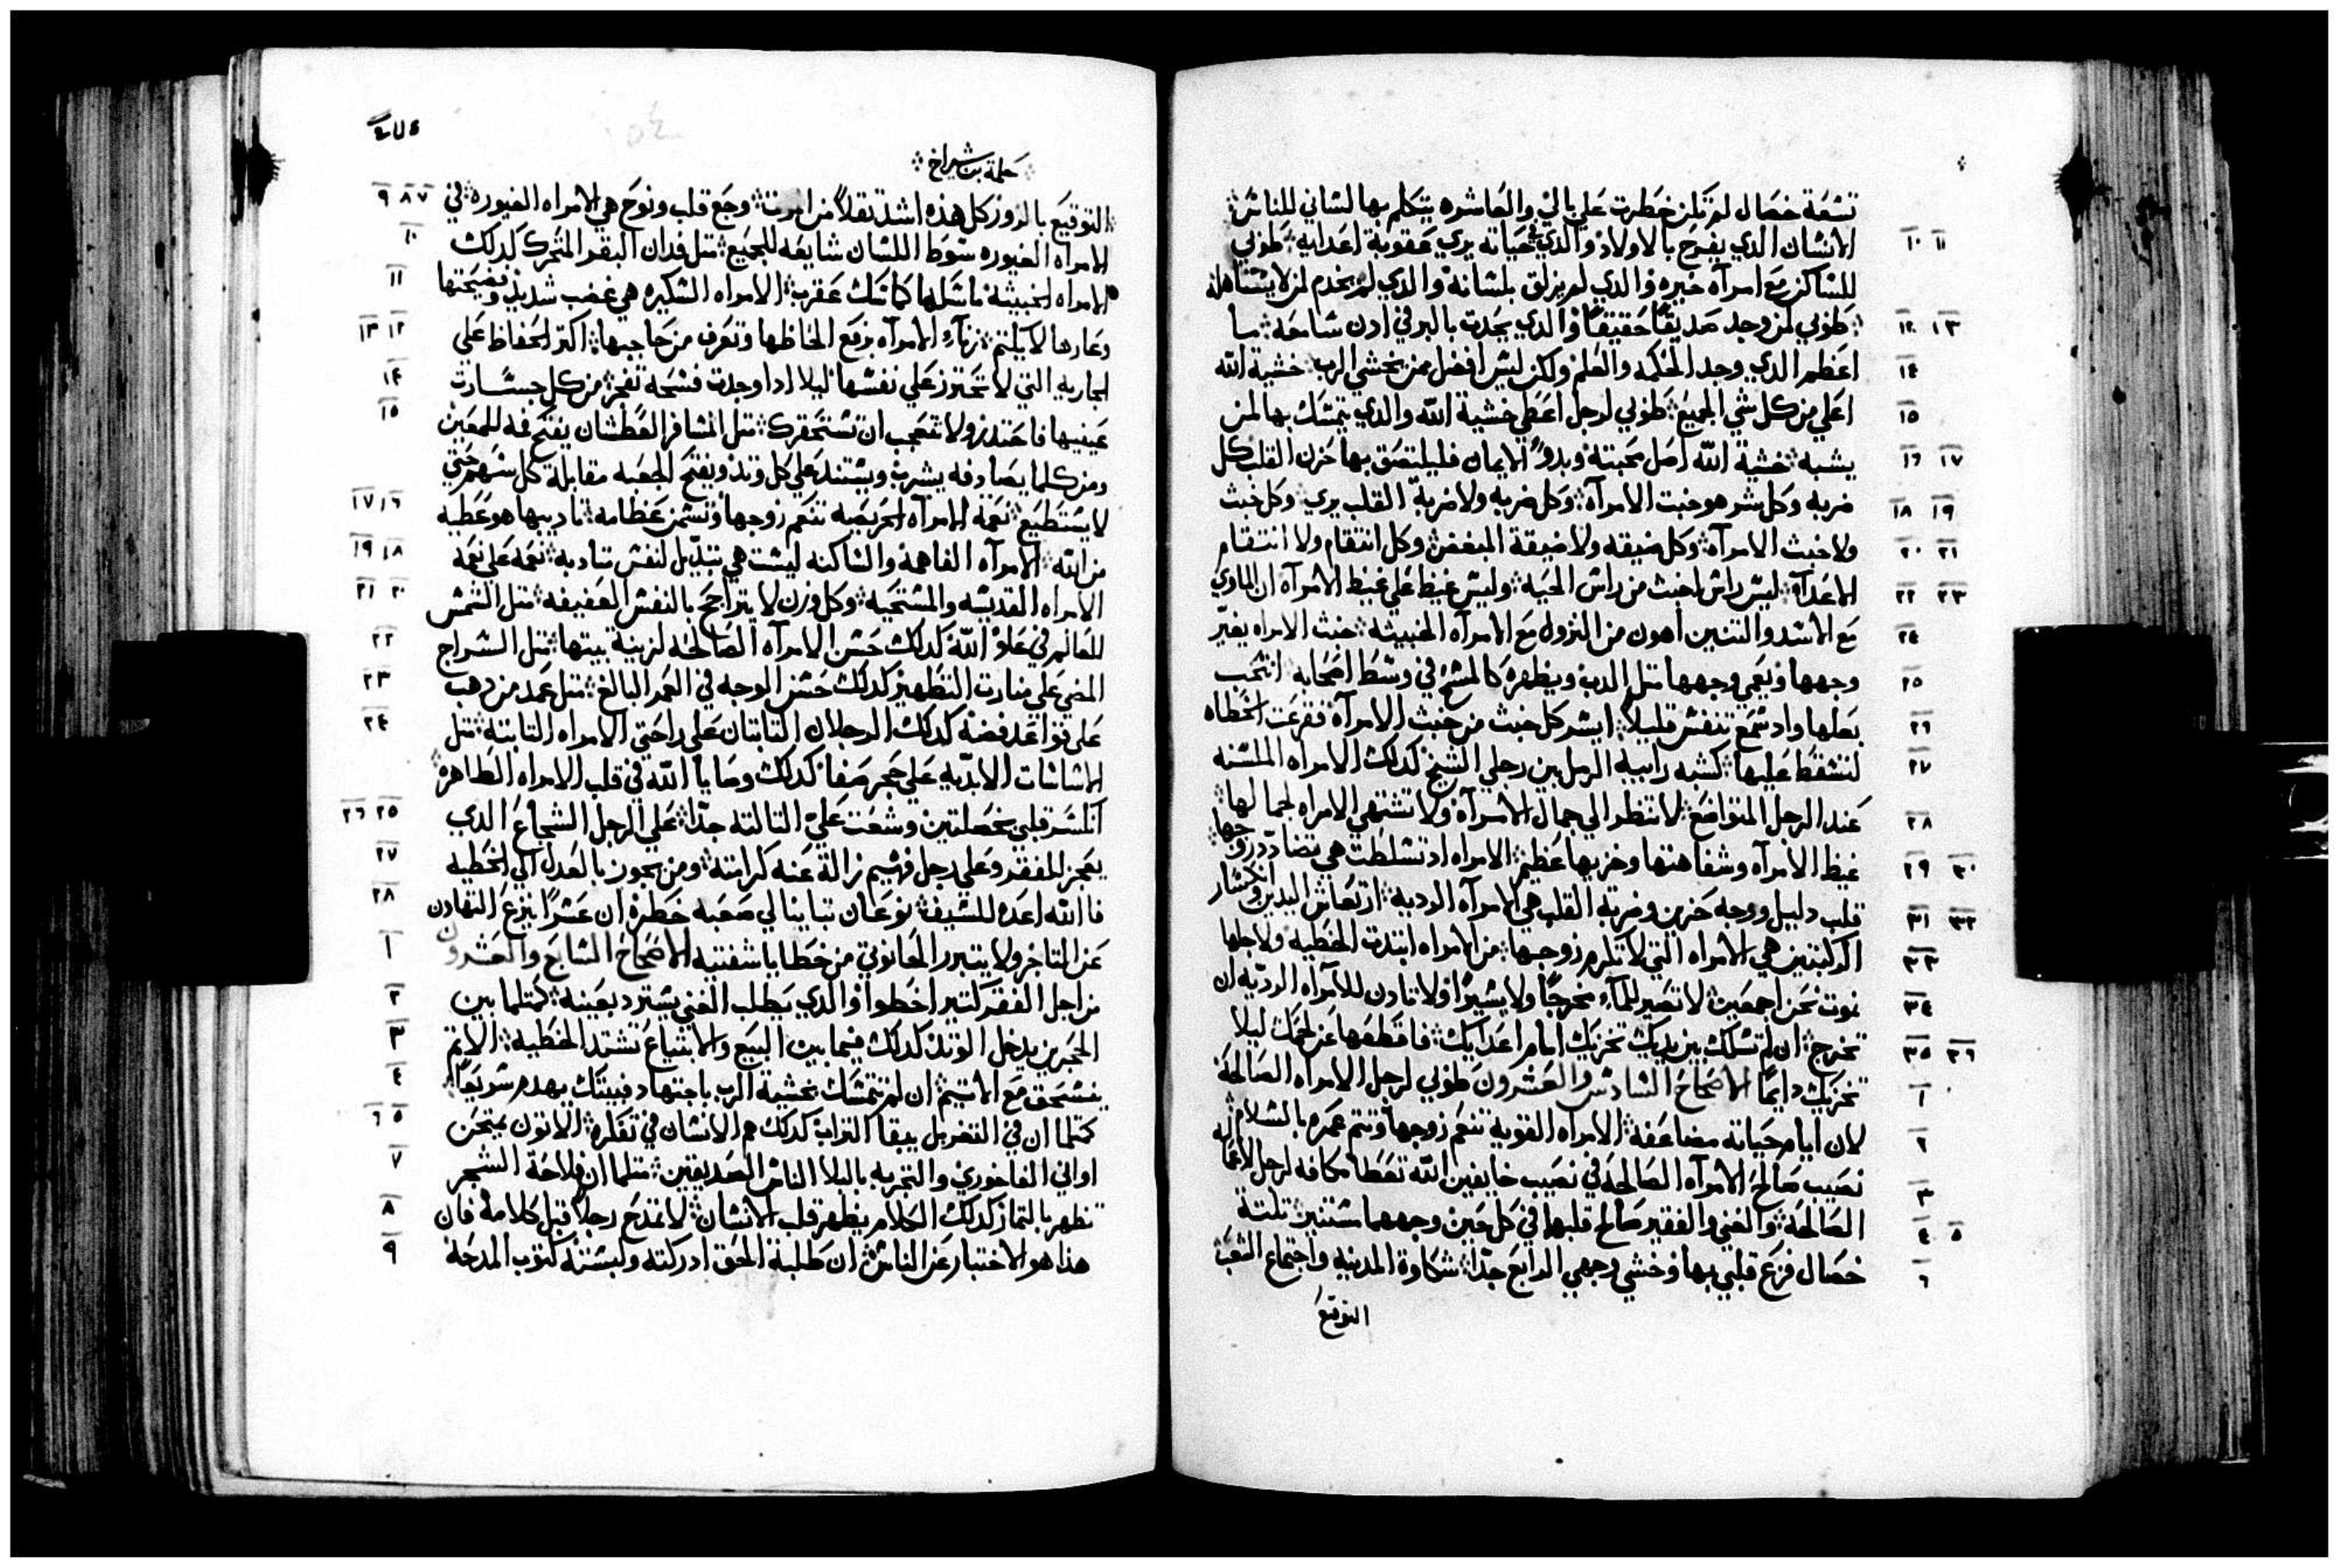 تسعة خصال لم تلن خطرت علي بالي والعاشره يتكلم بها لساني للناس
١٠ ١١ الانسان الدي يفرح بالاولاد والدي في حياته يري عقوبة اعدايه طوبي
للساكن مع امراه خبيره والدي لم يزلق بلسانه والدي لم يخدم لمن لا يستاهله
١٢ ١٣ طوبي لمن وجد صديقًا حقيقيًا والدي يحدت بالبر في ادن سامعه ما
١٤ اعظم الدي وجد الحكمه والعلم ولكن ليس افضل ممن يخشي الرب خشية الله
١٥ اعلي من كل شي الجميع طوبي لرجل اعطي خشية الله والدي يتمسك بها لمن
١٦ ١٧ يشبه خشية الله اصل محبته وبدو الايمان فليلتصق بها حزن القلب كل
١٨ ١٩ ضربه وكل شر هو خبت الامرآه وكل ضربه ولا ضربة القلب يري وكل خبث
٢٠ ٢١ ولا خبث الامرآه وكل ضيقه ولا ضيقة المبغض وكل انتقام ولا انتقام
٢٢ ٢٣ الاعدآ ليس راس اخبث من راس الحيه وليس غيظ علي غيظ الامرآه ان الماوي
٢٤ مع الاسد والتنين اهون من النزول مع الامرآه الخبيثه خبث الامراه يغيّر
٢٥ وجهها ويعمي وجهها متل الدب ويظهره كالمسح في وسط اصحابه انتحب
٢٦ بعلها واد سمع تنفس قليلًا ايسر كل خبث من خبث الامرآه فقرعت الخطاه
٢٧ لتسقط عليها كشبه رابية الرمل بين رجلي الشيخ كدلك الامراه الملسنه
٢٨ عند الرجل المتواضع لا تنظر الي جمال الامرآه ولا تشتهي الامراه لجمالها
٢٩ ٣٠ غيظ الامرآه وسفاهتها وخزيها عظيم الامراه اد تسلطت هي تضادد زوجها
٣١ ٣٢ قلب دليل ووجه حزين وضربة القلب هي الامرآه الرديه ارتعاش اليدين وانكسار
٣٣ الركبتين هي الامراه التي لا تكرم زوجها من الامراه ابتدت الخطيه ولاجلها
٣٤ نموت نحن اجمعين لا تصير للمآء مخرجًا ولا يسيرًا ولا تادن للامرآه الرديّه ان
٣٥ ٣٦ تخرج ان لم تسلك بين يديك تخزيك امام اعدايك فاقطعها عن لحمك ليلا
١ تخزيك دايمًا الاصحاح السادس والعشرون طوبي لرجل الامراه الصالحه
٢ لان ايام حياته مضاعفه الامراه القويه تنعم زوجها وتتم عمره بالسلام
٣ نصيب صالح الامرآه الصالحه في نصيب خايفين الله تعطا مكافه لرجل لاعماله
٤ ٥ الصالحه والغني والفقير صالح قلبهما في كل حين وجههما مستنير تلتة
٦ خصال فزع قلبي بها وخشي وجهي الرابع جدًا شكاوة المدينه واجتماع الشعب
التوقيع
حكمة بن شيراخ
٧ ٨ ٩ التوقيع بالزور كل هذه اشد تقلًا من الموت وجع قلب ونوح هي الامراه الغيوره في
١٠ الامراه الغيوره سوط اللسان شايعه للجميع متل فدان البقر المتحرك كدلك
١١ الامراه الخبيثه ماسكها كماسك عقرب الامراه السكيره هي غضب شديد وفضيحتها
١٢ ١٣ وعارها لا يكتم زناء الامرآه برفع الحاظها وتعرف من حاجبها اكتر الحفاظ علي
١٤ الجاريه التي لا تحترز علي نفسها ليلا ادا وجدت فسحه تفجر من كل جسارت
١٥ عينيها فاحتدز ولا تتعجب ان تستحقرك متل المسافر العطشان يفتح فمه للمعين
ومن كلما يصادفه يشرب ويستند علي كل وتد ويفتح الجعبه مقابلة كل سهم حتي
١٦ ١٧ لا يستطيع نعمة الامرآه الحريصه تنعم زوجها وتسمن عظامه تاديبها هو عطيه
١٨ ١٩ من الله الامرآه الفاهمه والساكنه ليست هي تبديل لنفس متادبه نعمه علي نعمه
٢٠ ٢١ الامراه القديسه والمستحيه وكل وزن لا يتراجح بالنفس العفيفه متل الشمس
٢٢ للعالم في علو الله كدلك حسن الامرآه الصالحه لزينة بيتها متل السراج
٢٣ المضي علي منارت التطهير كدلك حسن الوجه في العمر البالغ متل عمد من دهب
٢٤ علي قواعد فضه كدلك الرجلان التابتتان علي راحتي الامراه التابته متل
الاساسات الابديه علي حجر صفا كدلك وصايا الله في قلب الامراه الطاهره
٢٥ ٢٦ انكسر قلبي بخصلتين وشعت عليّ التالته جدًا علي الرجل الشجاع الدي
٢٧ يعجز للفقر وعلي رجل فهيم زالة عنه كرامته ومن يجوز بالعدل الي الخطيه
٢٨ فالله اعده للسيف نوعان تباينا لي صعبه خطره ان عسرًا ينزع التهادن
١ عن التاجر ولا يتبرر الحانوتي من خطايا شفتيه الاصحاح السابع والعشرون
٢ من اجل الفقر كتير اخطوا والدي يطلب الغني يسترد بعينه كمتلما بين
٣ الحجرين يدخل الوتد كدلك فيما بين البيع والابتياع تشتد الخطيه الاتم
٤ ينسحق مع الاتيم ان لم تتمسك بخشية الرب باجتهاد فبيتك يهدم سريعًا
٥ ٦ كمتلما ان في التغربل يبقا التراب كدلك هم الانسان في تفكره الاتون يمتحن
٧ اواني الفاخوري والتجربه بالبلا الناس الصديقين متلما ان فلاحة الشجر
٨ تظهر بالتمار كدلك الكلام يظهر قلب الانسان لا تمدح رجلًا قبل كلامه فان
٩ هذا هو الاختبار عن الناس ان طلبة الحق ادركته ولبسته كتوب المدحه